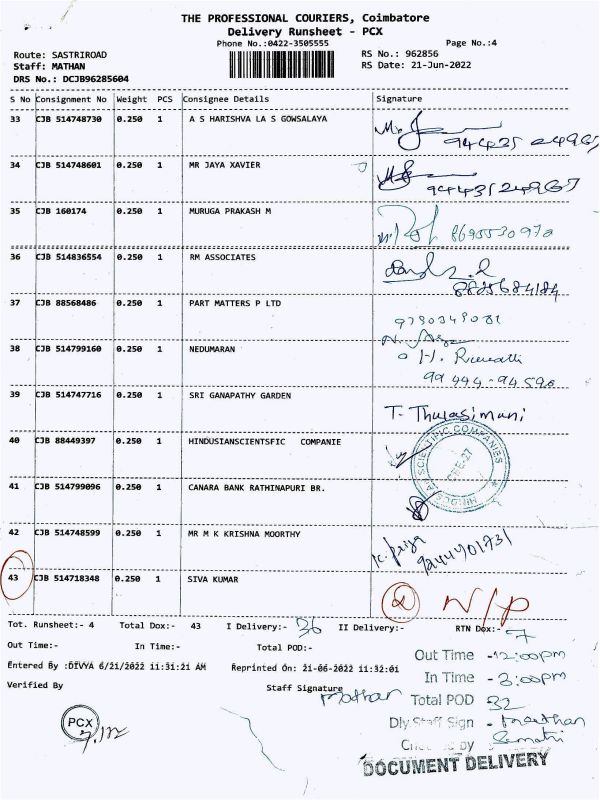 THE PROFESSIONAL COURIERS, Coimbatore
Delivery Runsheet - PCX
Phone No.:0422-3505555
Page No.:4
Route: SASTRIROAD
Staff: MATHAN
DRS No.: DCJB96285604
RS No.: 962856
RS Date: 21-Jun-2022
S No Consignment No Weight PCS Consignee Details Signature
33 CJB 514748730 0.250 1 A S HARISHVA LA S GOWSALAYA
34 CJB 514748601 0.250 1 MR JAYA XAVIER
9443124967
35 CJB 160174 0.250 1 MURUGA PRAKASH M
8695530970
36 CJB 514836554 0.250 1 RM ASSOCIATES
8825684184
37 CJB 88568486 0.250 1 PART MATTERS P LTD
38 CJB 514799160 0.250 1 NEDUMARAN
99444-94590
39 CJB 514747716 0.250 1 SRI GANAPATHY GARDEN
T. Thulasimani
40 CJB 88449397 0.250 1 HINDUSIANSCIENTSFIC COMPANIE
SCIENTIFIC COMPANIES
CBE-27
41 CJB 514799096 0.250 1 CANARA BANK RATHINAPURI BR.
42 CJB 514748599 0.250 1 MR M K KRISHNA MOORTHY
9244401731
43 CJB 514718348 0.250 1 SIVA KUMAR
2 N/P
Tot. Runsheet:- 4 Total Dox:- 43 I Delivery:- 36 II Delivery:- RTN Dox:- 7
Out Time:- In Time:- Total POD:-
Out Time - 12:00pm
Entered By :DIVYA 6/21/2022 11:31:21 AM Reprinted On: 21-06-2022 11:32:01
In Time - 3:00pm
Verified By Staff Signature Mathan
Total POD 32
PCX
Dly.Staff Sign - Mathan
DOCUMENT DELIVERY